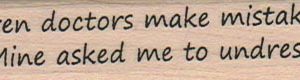 en doctors make mistak
Mine asked me to undres